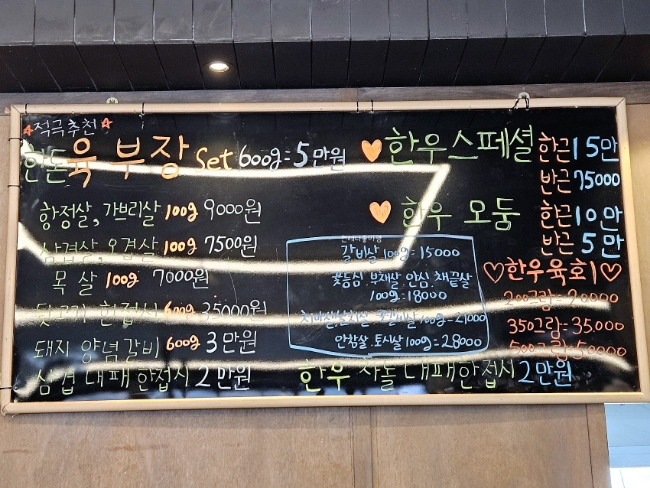 적극추천
한돈 육부장 set 600g=5만원
항정살, 가브리살 100g 9000원
삼겹살, 오겹살 100g 7500원
목살 100g 7000원
뒷고기 한접시 600g 35000원
돼지 양념갈비 600g 3만원
삼겹 대패 한접시 2만원
한우스페셜 한근 15만
반근 75000
한우 모둠 한근 10만
반근 5만
갈비살 100g=15000
꽃등심, 부채살, 안심, 채끝살
100g=18000
100g=21000
안창살, 토시살 100g=28000
한우 차돌 대패한접시 2만원
♡한우육회♡
200그람=20000
350그람=35.000
500그람=50000